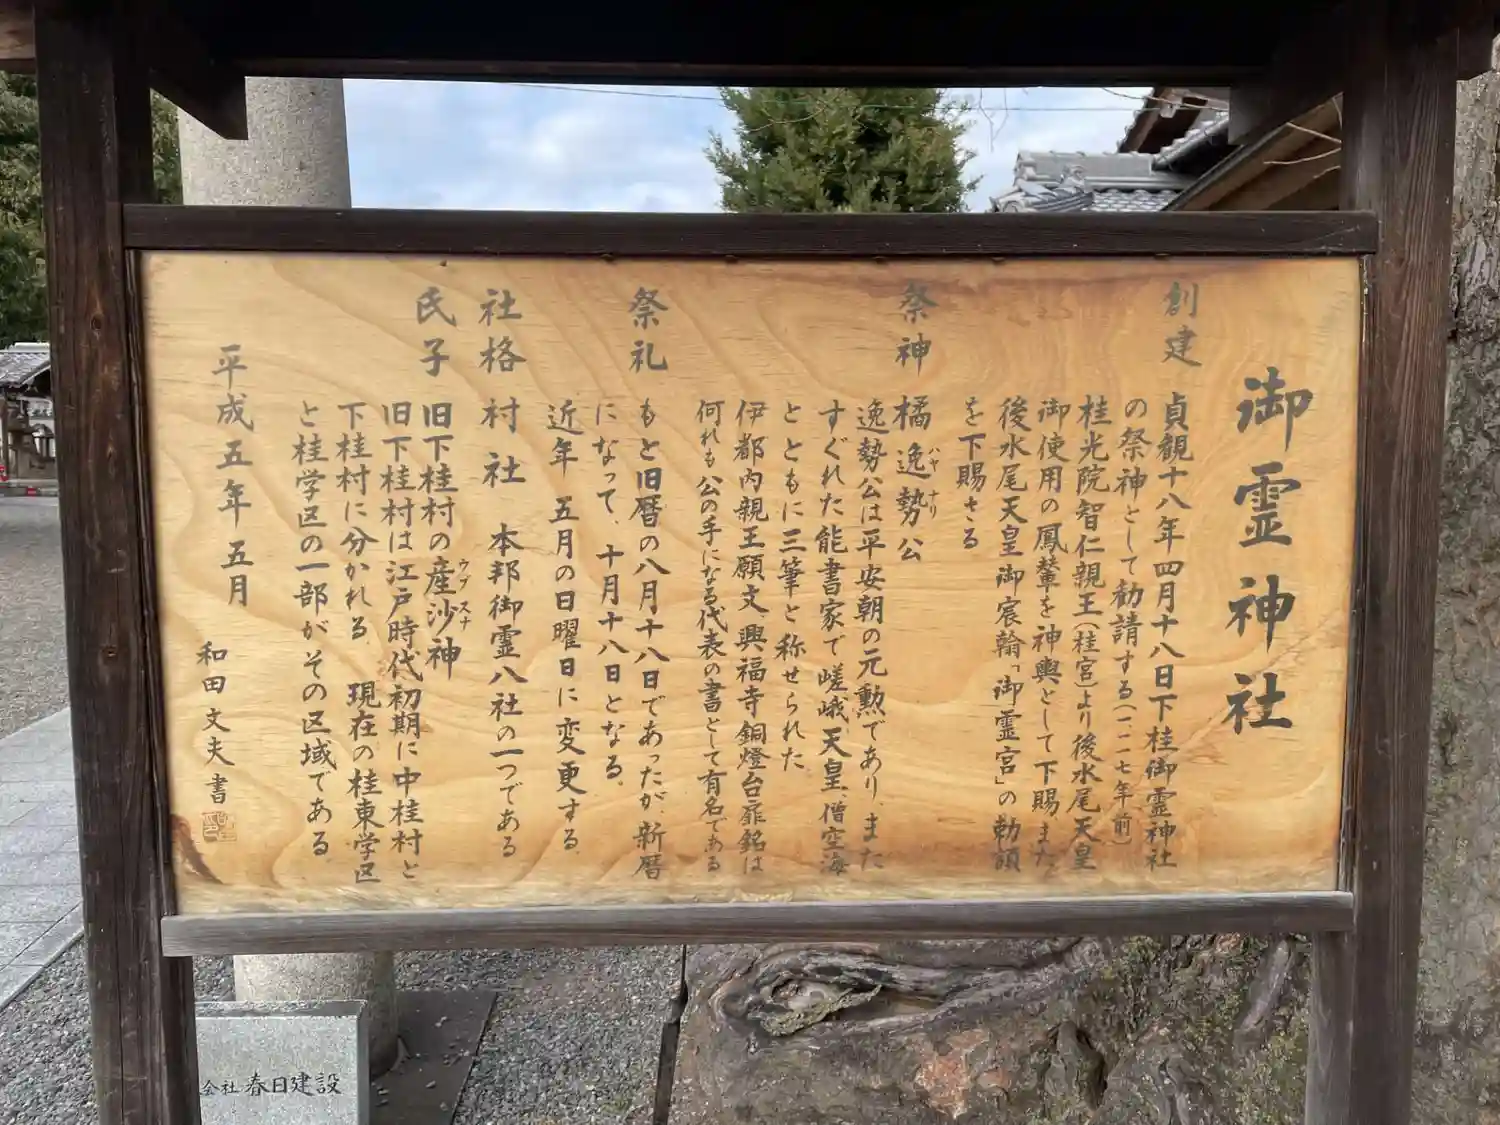 御霊神社
創建
貞観十八年四月十八日下桂御霊神社
の祭神として勧請する(一一一七年前)
桂光院智仁親王(桂宮)より後水尾天皇
御使用の鳳輦を神輿として下賜また
後水尾天皇御宸翰「御霊宮」の勅額
を下賜さる
祭神
橘逸勢公
ハヤナリ
逸勢公は平安朝の元勲であり、また
すぐれた能書家で嵯峨天皇、僧空海
とともに三筆と称せられた
伊都内親王願文、興福寺銅燈台扉銘は
何れも公の手になる代表の書として有名である
祭礼
もと旧暦の八月十八日であったが、新暦
になって、十月十八日となる。
近年 五月の日曜日に変更する
社格
村社 本邦御霊八社の一つである
氏子
旧下桂村の産沙神
ウブスナ
旧下桂村は江戸時代初期に中桂村と
下桂村に分かれる 現在の桂東学区
と桂学区の一部がその区域である
平成五年五月
和田文夫書
会社 春日建設